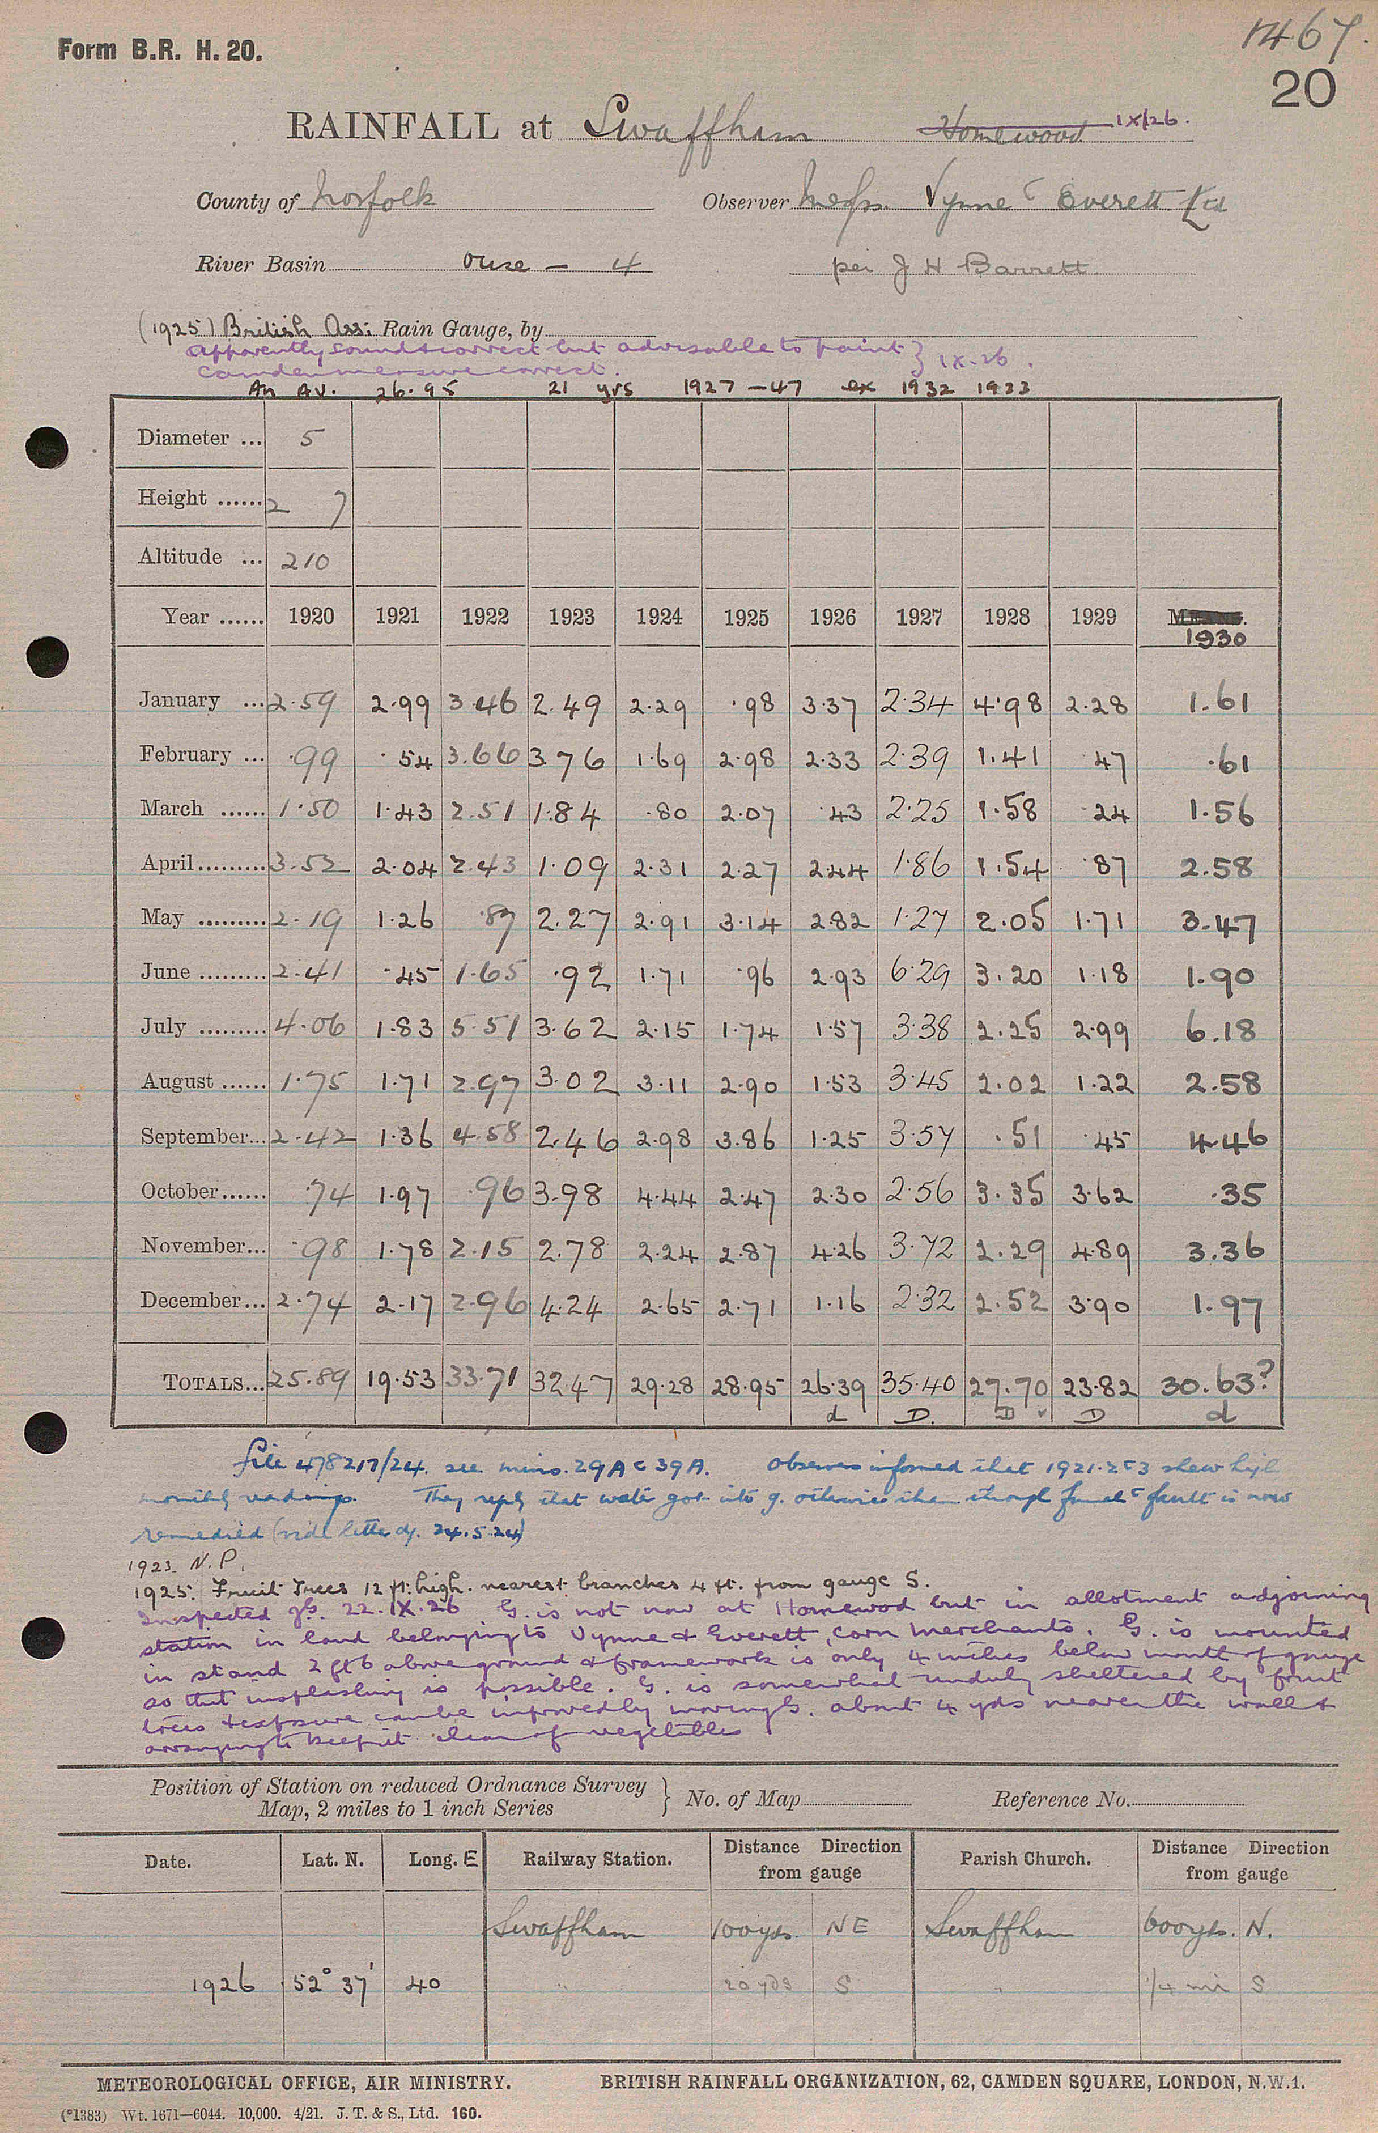 Form B.R. H. 20.
1467.
20
RAINFALL at Swaffham Homewood IX/26.
County of Norfolk Observer Messrs. Vynne & Everett Ltd
River Basin Ouse — 4 per J H Barrett
(1925) British Ass: Rain Gauge, by
Apparently sound & correct but advisable to paint } IX.26.
Camden measure correct.
An Av. 26.95 21 yrs 1927 - 47 ex 1932 1933
Diameter ... 5
Height ...... 2 7
Altitude ... 210
Year ...... 1920 1921 1922 1923 1924 1925 1926 1927 1928 1929 1930
January ... 2.59 2.99 3.46 2.49 2.29 .98 3.37 2.34 4.98 2.28 1.61
February ... .99 .54 3.66 3.76 1.69 2.98 2.33 2.39 1.41 .47 .61
March ...... 1.50 1.43 2.51 1.84 .80 2.07 .43 2.25 1.58 .24 1.56
April ......... 3.52 2.04 2.43 1.09 2.31 2.27 2.44 1.86 1.54 .87 2.58
May ......... 2.19 1.26 .87 2.27 2.91 3.14 2.82 1.27 2.05 1.71 3.47
June ......... 2.41 .45 1.65 .92 1.71 .96 2.93 6.29 3.20 1.18 1.90
July ......... 4.06 1.83 5.51 3.62 2.15 1.74 1.57 3.38 2.25 2.99 6.18
August ...... 1.75 1.71 2.97 3.02 3.11 2.90 1.53 3.45 2.02 1.22 2.58
September... 2.42 1.36 4.58 2.46 2.98 3.86 1.25 3.57 .51 .45 4.46
October...... .74 1.97 .96 3.98 4.44 2.47 2.30 2.56 3.35 3.62 .35
November... .98 1.78 2.15 2.78 2.24 2.87 4.26 3.72 2.29 4.89 3.36
December... 2.74 2.17 2.96 4.24 2.65 2.71 1.16 2.32 2.52 3.90 1.97
TOTALS... 25.89 19.53 33.71 32.47 29.28 28.95 26.39 35.40 27.70 23.82 30.63?
d D. D v D d
File 478217/24. see mins. 29A & 39A. Observer informed that 1921.2 & 3 shew high
monthly readings. They reply that water got into g. otherwise than through funnel & fault is now
remedied (vide letter of 24.5.24)
1923. N.P.
1925: Fruit Trees 12 ft. high. nearest branches 4 ft. from gauge S.
Inspected 22.IX.26. G. is not now at Homewood but in allotment adjoining
station in land belonging to Vynne & Everett, corn merchants. G. is mounted
in stand 2 ft 6 above ground & framework is only 4 inches below mouth of gauge
so that insplashing is possible. G. is somewhat unduly sheltered by fruit
trees & exposure can be improved by moving G. about 4 yds nearer the wall &
arranging to keep it clear of vegetables
Position of Station on reduced Ordnance Survey Map, 2 miles to 1 inch Series } No. of Map Reference No.
Date. Lat. N. Long. E Railway Station. Distance Direction from gauge Parish Church. Distance Direction from gauge
Swaffham 100 yds. NE Swaffham 600 yds. N.
1926 52° 37' 40 " 20 yds S " 1/4 mi S
METEOROLOGICAL OFFICE, AIR MINISTRY. BRITISH RAINFALL ORGANIZATION, 62, CAMDEN SQUARE, LONDON, N.W.1.
(*1383) Wt. 1671—6044. 10,000. 4/21. J. T. & S., Ltd. 160.